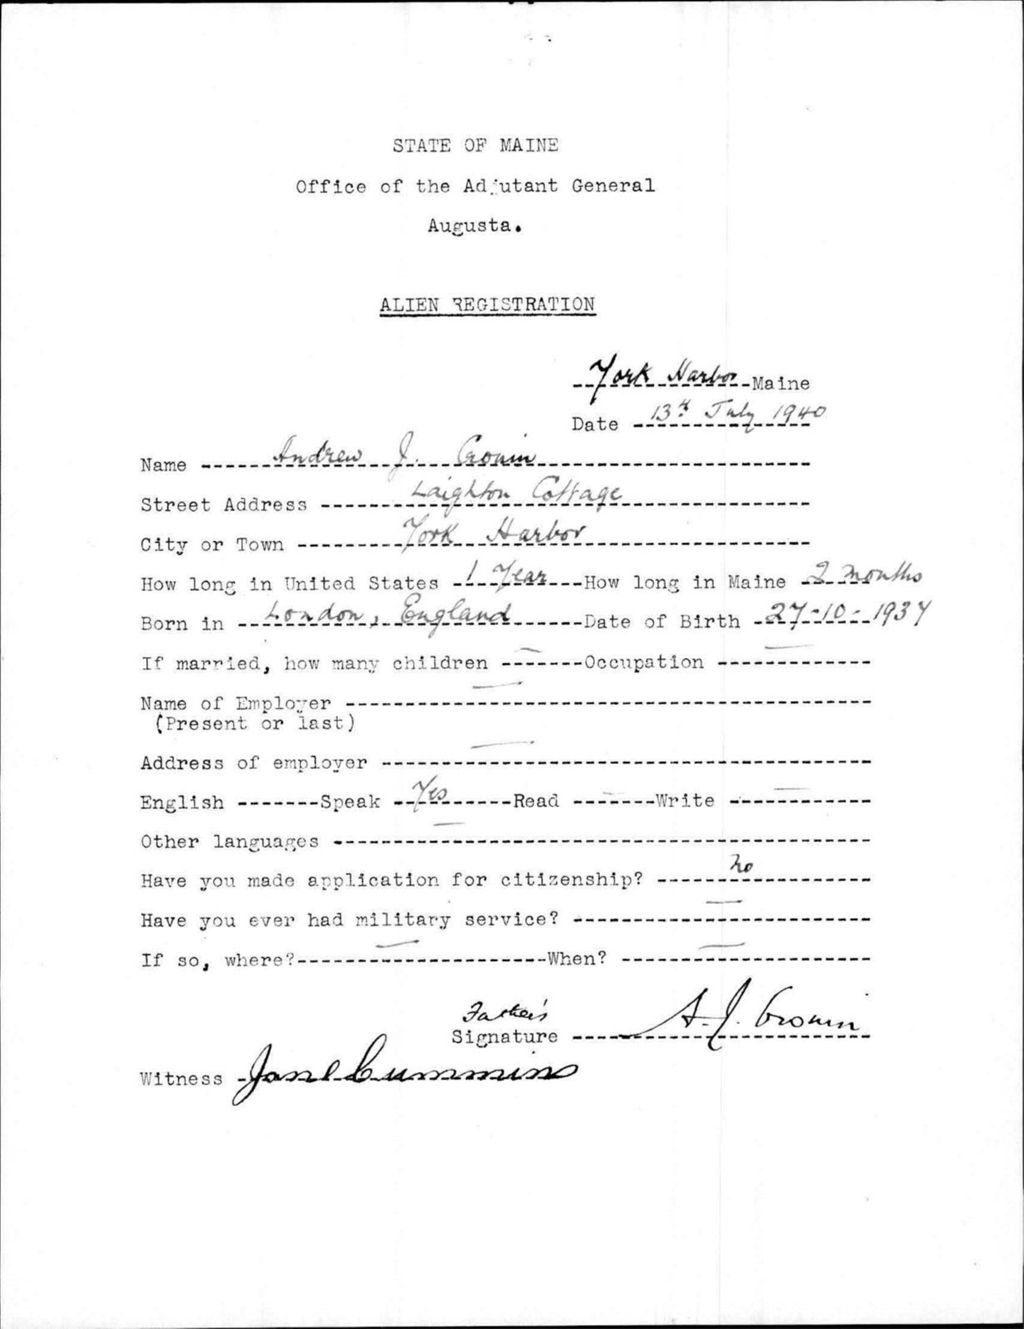 STATE OF MAINE
Office of the Adjutant General
Augusta.
ALIEN REGISTRATION
York Harbor Maine
Date 13th July 1940
Name Andrew J. Cronin
Street Address Laighton Cottage
City or Town York Harbor
How long in United States 1 Year How long in Maine 2 months
Born in London, England Date of Birth 27-10-1937
If married, how many children — Occupation —
Name of Employer —
(Present or last)
Address of employer —
English Speak Yes Read — Write —
Other languages —
Have you made application for citizenship? No
Have you ever had military service? —
If so, where? — When? —
Father's
Signature A. J. Cronin
Witness Jane Cummins